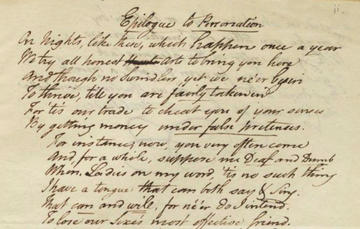 Epilogue to Personation
On Nights, like these, which happen once a year
We try all honest arts to bring you here
And though no Swindlers, yet we ne'er begin
To thrive, till you are fairly taken in
For 'tis our trade to cheat you of your senses
By getting money under false pretenses.
For instance, now, you very often come
And for a while, suppose me Deaf and Dumb
When, Ladies on my word, 'tis no such thing
I have a tongue that can both say & Sing.
That can and will, for ne'er do I intend
To lose our Sexes most effective friend.